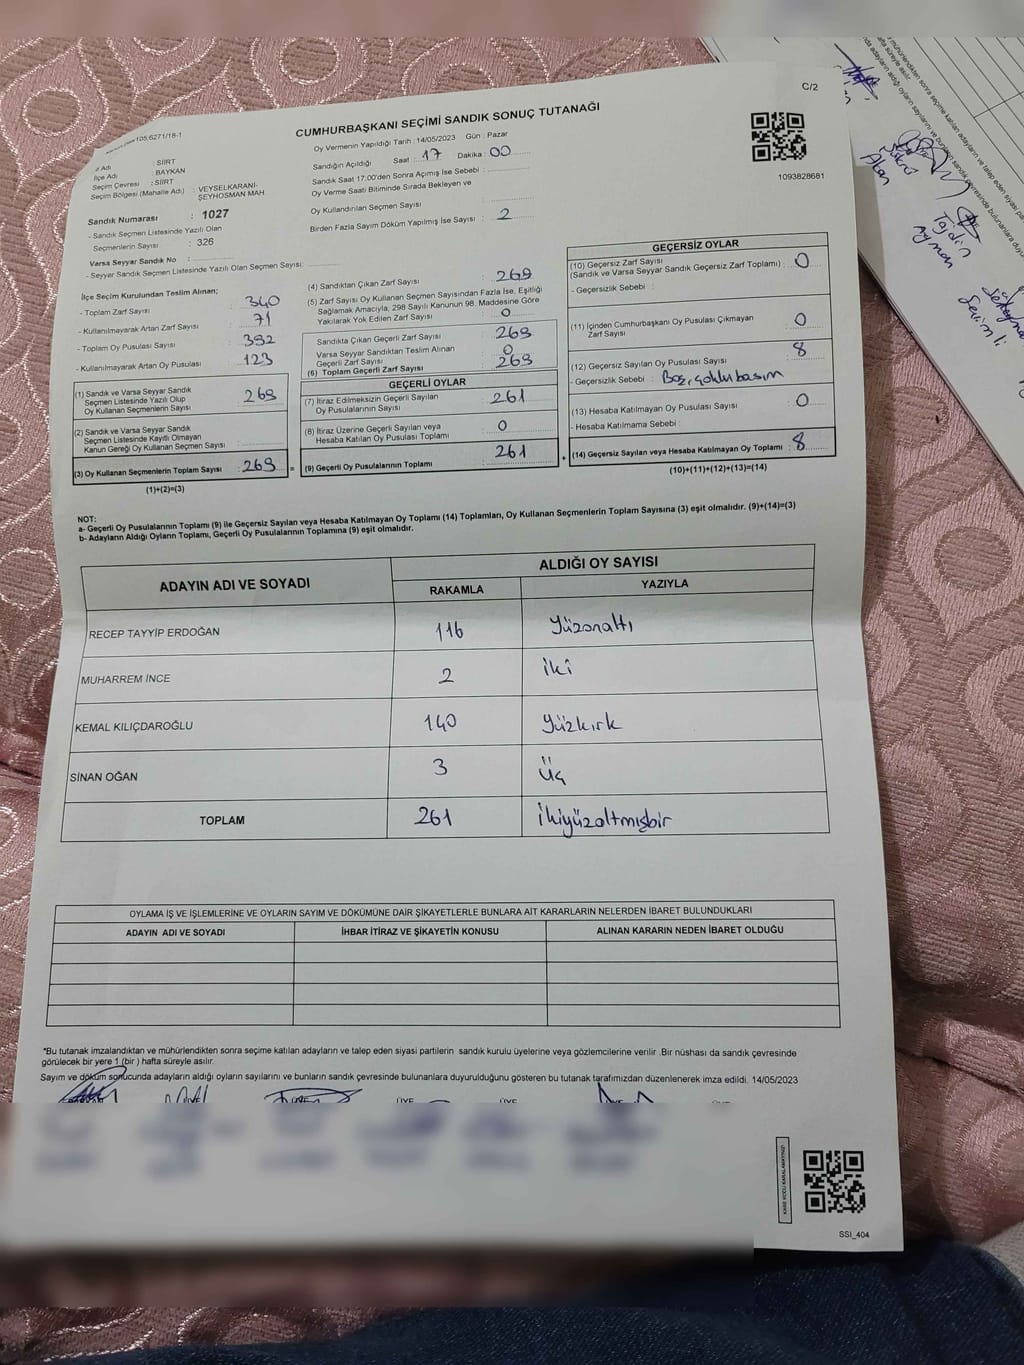 C/2
CUMHURBAŞKANI SEÇİMİ SANDIK SONUÇ TUTANAĞI
Oy Vermenin Yapıldığı Tarih : 14/05/2023 Gün : Pazar
Sandığın Açıldığı Saat : 17 Dakika : 00
Sandık Saat 17:00'den Sonra Açımış İse Sebebi :
Oy Verme Saati Bitiminde Sırada Bekleyen ve
Oy Kullandırılan Seçmen Sayısı :
Birden Fazla Sayım Döküm Yapılmış İse Sayısı : 2
1093828681
İl Adı : SİİRT
İlçe Adı : BAYKAN
Seçim Çevresi : SİİRT
Seçim Bölgesi (Mahalle Adı) : VEYSELKARANİ-
ŞEYHOSMAN MAH
Sandık Numarası : 1027
- Sandık Seçmen Listesinde Yazılı Olan
Seçmenlerin Sayısı : 326
Varsa Seyyar Sandık No :
- Seyyar Sandık Seçmen Listesinde Yazılı Olan Seçmen Sayısı:
İlçe Seçim Kurulundan Teslim Alınan;
- Toplam Zarf Sayısı : 340
- Kullanılmayarak Artan Zarf Sayısı : 71
- Toplam Oy Pusulası Sayısı : 392
- Kullanılmayarak Artan Oy Pusulası : 123
(1) Sandık ve Varsa Seyyar Sandık
Seçmen Listesinde Yazılı Olup
Oy Kullanan Seçmenlerin Sayısı : 269
(2) Sandık ve Varsa Seyyar Sandık
Seçmen Listesinde Kayıtlı Olmayan
Kanun Gereği Oy Kullanan Seçmen Sayısı :
(3) Oy Kullanan Seçmenlerin Toplam Sayısı : 269 =
(1)+(2)=(3)
(4) Sandıktan Çıkan Zarf Sayısı : 269
(5) Zarf Sayısı Oy Kullanan Seçmen Sayısından Fazla İse, Eşitliği
Sağlamak Amacıyla, 298 Sayılı Kanunun 98. Maddesine Göre
Yakılarak Yok Edilen Zarf Sayısı : 0
Sandıkta Çıkan Geçerli Zarf Sayısı : 269
Varsa Seyyar Sandıktan Teslim Alınan
Geçerli Zarf Sayısı : 0
(6) Toplam Geçerli Zarf Sayısı : 269
GEÇERLİ OYLAR
(7) İtiraz Edilmeksizin Geçerli Sayılan
Oy Pusulalarının Sayısı : 261
(8) İtiraz Üzerine Geçerli Sayılan veya
Hesaba Katılan Oy Pusulası Toplamı : 0
(9) Geçerli Oy Pusulalarının Toplamı : 261 +
GEÇERSİZ OYLAR
(10) Geçersiz Zarf Sayısı
(Sandık ve Varsa Seyyar Sandık Geçersiz Zarf Toplamı) : 0
- Geçersizlik Sebebi :
(11) İçinden Cumhurbaşkanı Oy Pusulası Çıkmayan
Zarf Sayısı : 0
(12) Geçersiz Sayılan Oy Pusulası Sayısı : 8
- Geçersizlik Sebebi :
(13) Hesaba Katılmayan Oy Pusulası Sayısı : 0
- Hesaba Katılmama Sebebi :
(14) Geçersiz Sayılan veya Hesaba Katılmayan Oy Toplamı : 8
(10)+(11)+(12)+(13)=(14)
NOT:
a- Geçerli Oy Pusulalarının Toplamı (9) ile Geçersiz Sayılan veya Hesaba Katılmayan Oy Toplamı (14) Toplamları, Oy Kullanan Seçmenlerin Toplam Sayısına (3) eşit olmalıdır. (9)+(14)=(3)
b- Adayların Aldığı Oyların Toplamı, Geçerli Oy Pusulalarının Toplamına (9) eşit olmalıdır.
ADAYIN ADI VE SOYADI
ALDIĞI OY SAYISI
RAKAMLA YAZIYLA
RECEP TAYYİP ERDOĞAN 116 Yüzonaltı
MUHARREM İNCE 2 iki
KEMAL KILIÇDAROĞLU 140 Yüzkırk
SİNAN OĞAN 3 Üç
TOPLAM 261 İkiyüzaltmışbir
OYLAMA İŞ VE İŞLEMLERİNE VE OYLARIN SAYIM VE DÖKÜMÜNE DAİR ŞİKAYETLERLE BUNLARA AİT KARARLARIN NELERDEN İBARET BULUNDUKLARI
ADAYIN ADI VE SOYADI İHBAR İTİRAZ VE ŞİKAYETİN KONUSU ALINAN KARARIN NEDEN İBARET OLDUĞU
*Bu tutanak imzalandıktan ve mühürlendikten sonra seçime katılan adayların ve talep eden siyasi partilerin sandık kurulu üyelerine veya gözlemcilerine verilir .Bir nüshası da sandık çevresinde
görülecek bir yere 1 (bir ) hafta süreyle asılır.
Sayım ve döküm sonucunda adayların aldığı oyların sayılarını ve bunların sandık çevresinde bulunanlara duyurulduğunu gösteren bu tutanak tarafımızdan düzenlenerek imza edildi. 14/05/2023
SSI_404